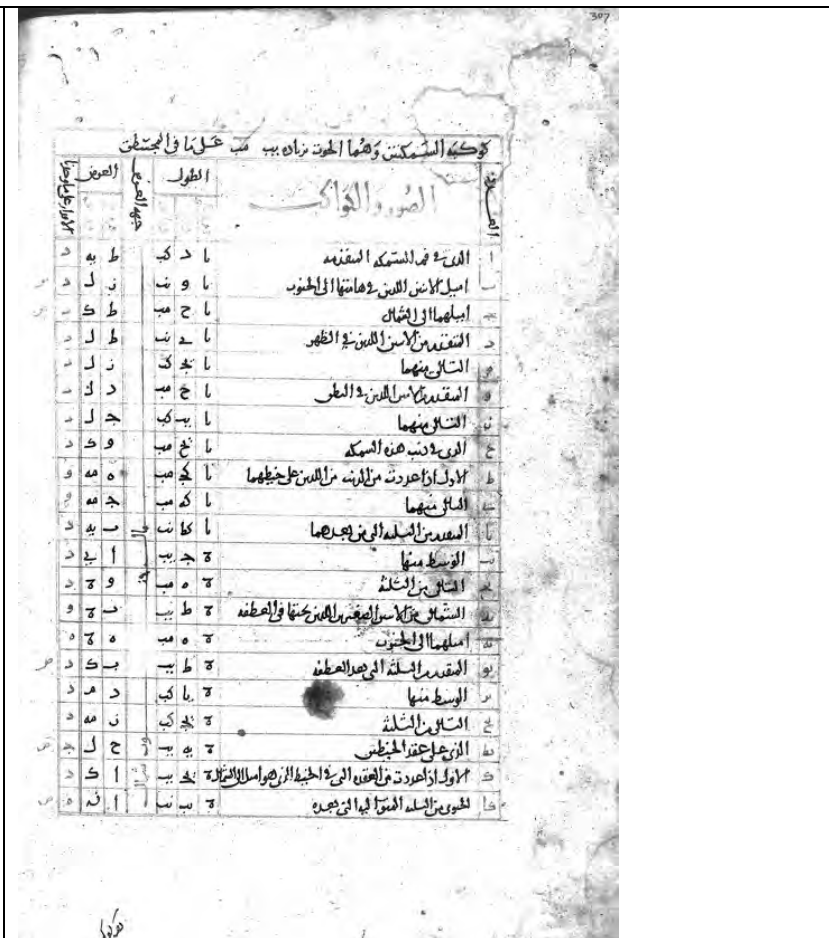 307
كوكبة السمكتين وهما الحوت بزيادة يب مب على ما في المجسطي
العدد الصور والكواكب الطول جهة العرض العرض الاقدار على ما وجدنا
ا الذي في فم السمكة المتقدمة يا د كب ط يه د
ب اميل الاثنين اللذين في هامتها الى الجنوب يا و نب ز ل د
ج اميلهما الى الشمال يا ح مب ط ك د
د المتقدم من الاثنين اللذين في الظهر يا ي نب ط ل د
ه التالي منهما يا يج كب ز ل د
و المتقدم من الاثنين اللذين في البطن يا ح مب د ل د
ز التالي منهما يا يب كب ج ل د
ح الذي في ذنب هذه السمكة يا يح مب و ك د
ط الاول اذا عددت من الذنب من اللذين على خيطهما يا كج مب ه مه و
ي التالي منهما يا كه مب ج مه و
يا المتقدم من الثلثة التي من بعدهما يا كط نب ب يه د
يب الوسط منها ة ج يب ا ي د
يج التالي من الثلثة ة ه مب و ة د
يد الشمالي من الاثنين الصغيرين اللذين تحتها في العطفة ة ط يب ب ة و
يه اميلهما الى الجنوب ة ه مب ه ة ه
يو المتقدم من الثلثة التي بعد العطفة ة ط يب ب ك د
يز الوسط منها ة يا كب د م د
يح التالي من الثلثة ة يج كب ز مه د
يط الذي على عقد الخيطين ة يه يب ح ل ج
ك الاول اذا عددت من العقدة التي في الخيط الذي هو اميل الى الشمال ة يج يب ا ك د
كا الجنوبي من الثلثة المتوالية التي بعده ة يب نب ا ن ه